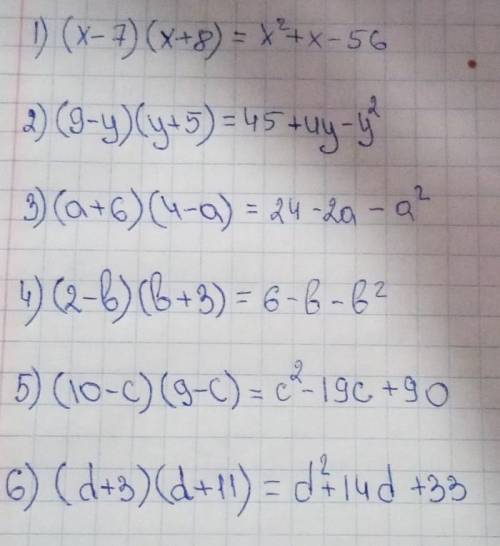 1) (x-7)(x+8) = x²+x-56
2) (9-y)(y+5) = 45+4y-y²
3) (a+6)(4-a) = 24-2a-a²
4) (2-b)(b+3) = 6-b-b²
5) (10-c)(9-c) = c²-19c+90
6) (d+3)(d+11) = d²+14d+33